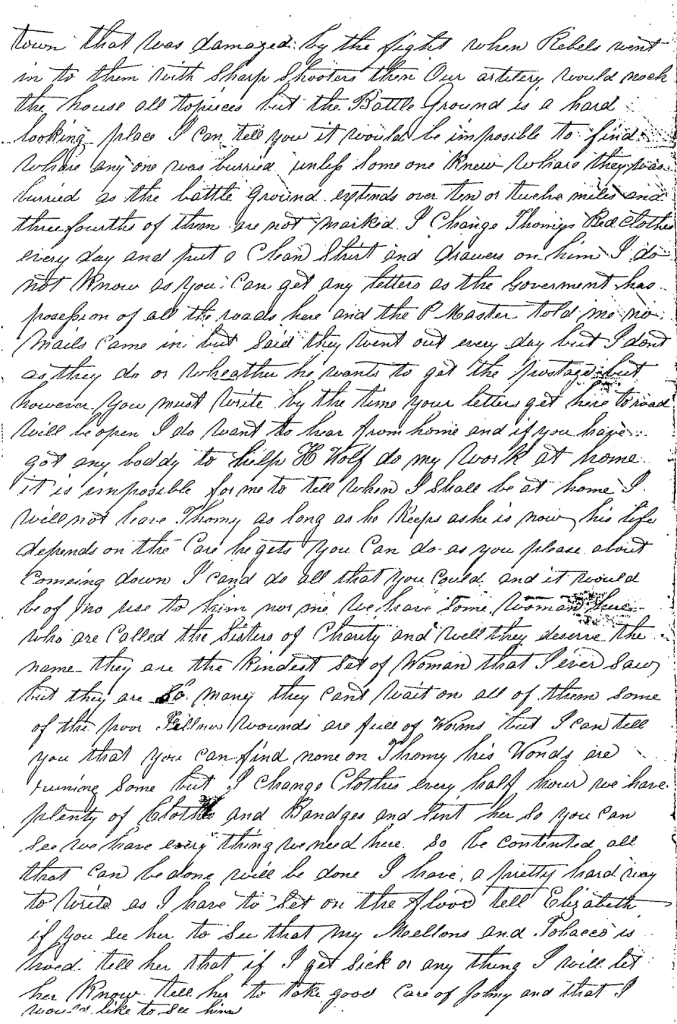 town that was damaged by the fight when Rebels went
in to them with Sharp Shooters then Our artilery would nock
the house all topieces but the Battle Ground is a hard
looking place I can tell you it would be imposible to find
whare any one was burried unless Some one Knew whare they was
burried as the battle Ground extends over ten or twelve miles and
three fourths of them are not marked I Change Thomys Bed Clothes
every day and put a Clean Shirt and drawers on him I do
not Know as you Can get any letters as the Goverment has
posession of all the roads here and the P Master told me no
Mails Came in but Said they went out every day but I dont
as they do or wheather he wants to get the postage but
however you must write by the time your letters get here to road
will be open I do want to hear from home and if you have
got any boddy to help H Wolf do my work at home
it is imposible for me to tell when I Shall be at home I
will not leave Thomy as long as he Keeps as he is now his life
depends on the Care he gets you Can do as you please about
Comeing down I cand do all that you Could and it would
be of no use to him nor me We have Some woman here
who are Called the Sisters of Charity and well they deserve the
name they are the kindest Set of Woman that I ever Saw
but they are So many they cant wait on all of them Some
of the poor Fellows wounds are full of Worms but I can tell
you that you can find none on Thomy his Wonds are
runing Some but I Change Clothes every half hour we have
plenty of Cloths and Bandges and lint her So you can
See we have every thing we need here So be contented all
that can be done will be done I have a pretty hard way
to write as I have to Set on the floor tell Elizabeth
if you See her to See that my Mellons and Tobacco is
hoed tell her that if I get Sick or any thing I will let
her Know tell her to take good Care of Johny and that I
would like to See him